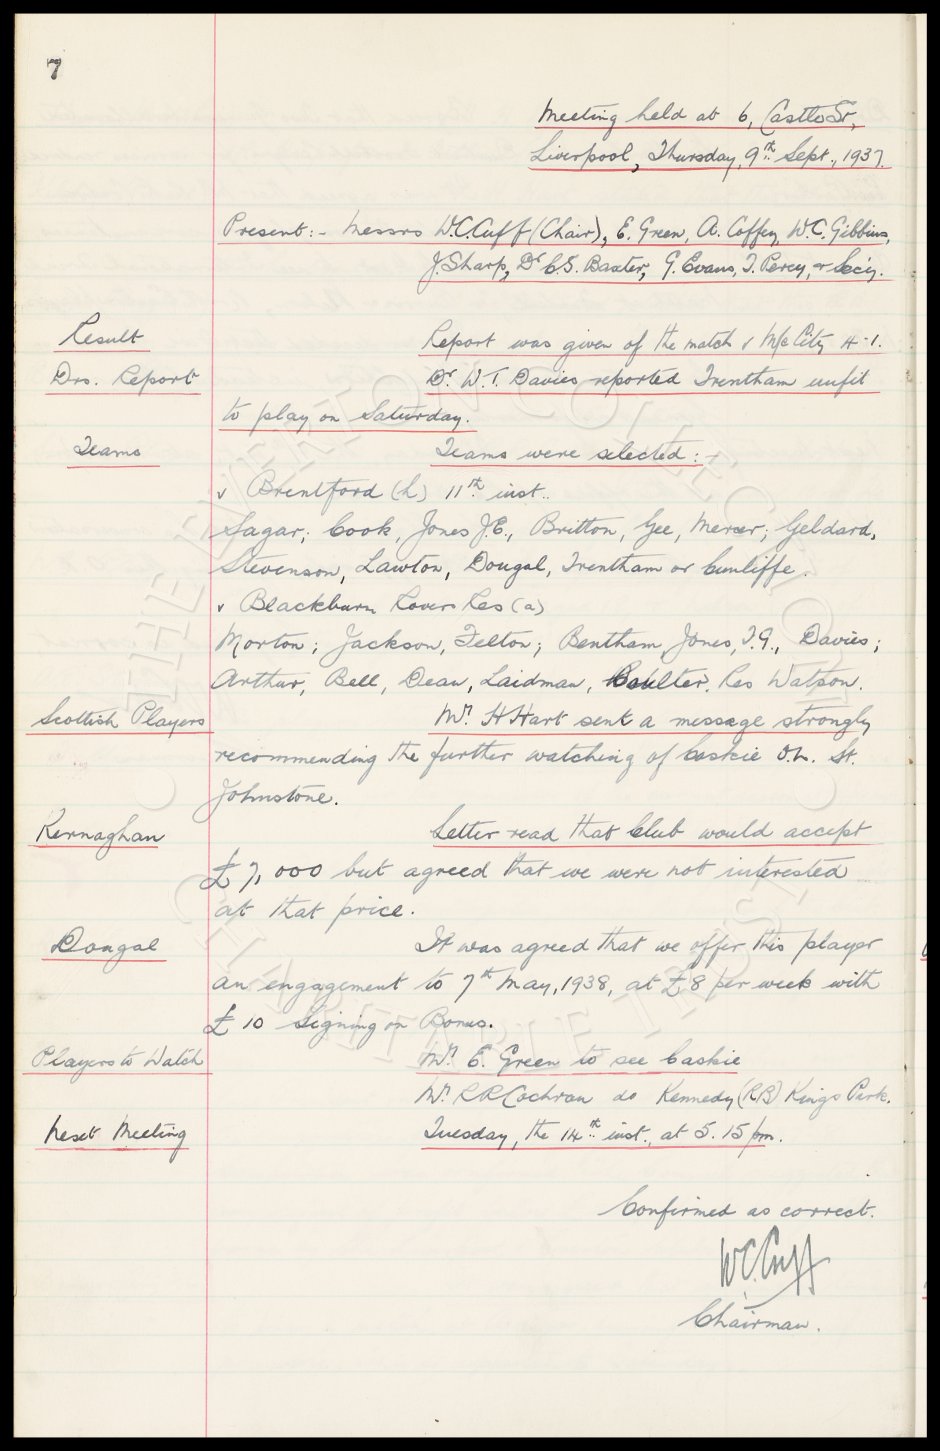 7
Meeting held at 6, Castle St,
Liverpool, Thursday, 9th Sept., 1937.
Present:- Messrs W.C. Cuff (Chair), E. Green, A. Coffey, W.C. Gibbins,
J. Sharp, Dr C.S. Baxter, G. Evans, T. Percy, & Sec'y.
Result Report was given of the match v M/c City 4-1.
Drs. Report Dr W.T. Davies reported Trentham unfit
to play on Saturday.
Teams Teams were selected:-
v Brentford (h) 11th inst..
Sagar; Cook, Jones J.E., Britton, Gee, Mercer; Geldard,
Stevenson, Lawton, Dougal, Trentham or Cunliffe.
v Blackburn Rovers Res (a)
Morton; Jackson, Felton; Bentham, Jones, T.G., Davies;
Arthur, Bell, Dean, Laidman, Coulter. Res Watson.
Scottish Players Mr. H Hart sent a message strongly
recommending the further watching of Caskie O.L. St.
Johnstone.
Kernaghan Letter read that Club would accept
£7,000 but agreed that we were not interested
at that price.
Dougal It was agreed that we offer this player
an engagement to 7th May, 1938, at £8 per week with
£10 Signing on Bonus.
Players to Watch Mr. E. Green to see Caskie
Mr. R R Cochran do Kennedy (RB) Kings Park.
Next Meeting Tuesday, the 14th inst., at 5.15 pm.
Confirmed as correct.
WC. Cuff
Chairman.
THE EVERTON COLLECTION
CHARITABLE TRUST